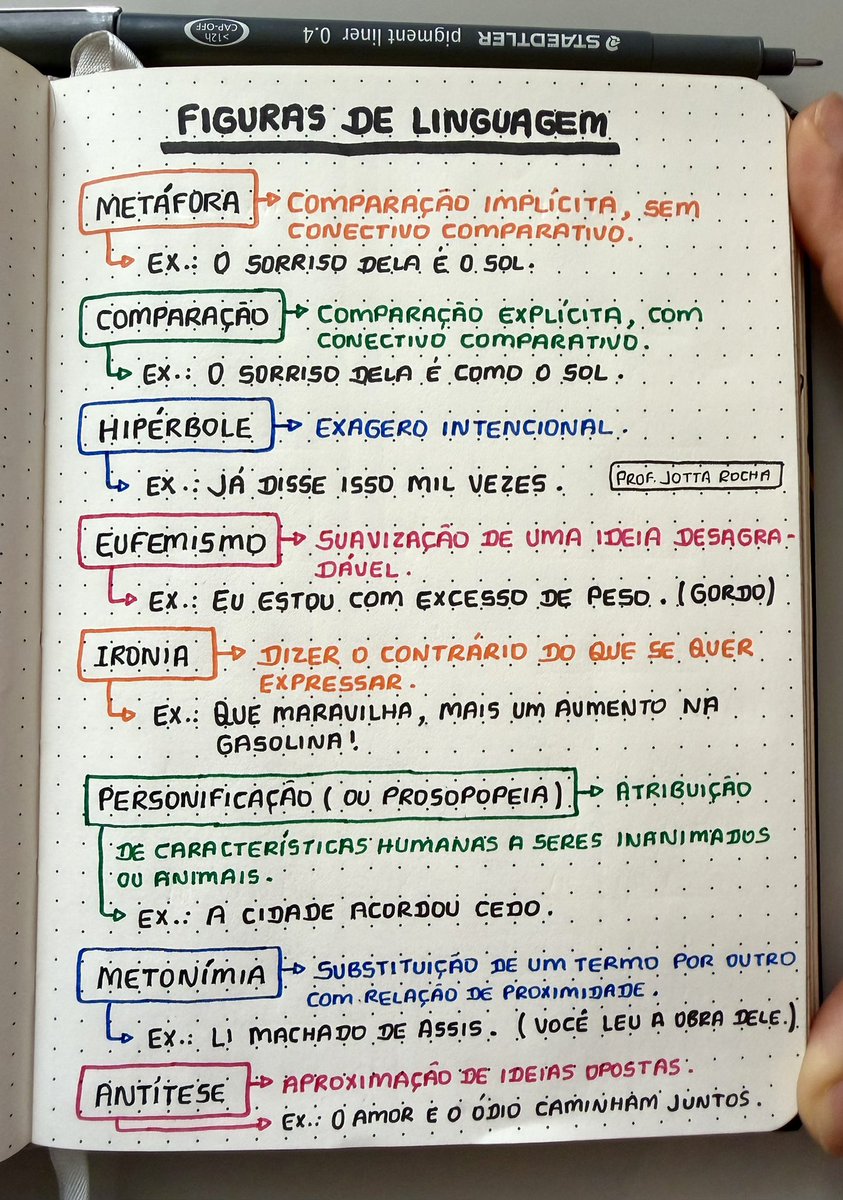 STAEDTLER pigment liner 0.4
>12h
CAP-OFF
FIGURAS DE LINGUAGEM
METÁFORA COMPARAÇÃO IMPLÍCITA, SEM
CONECTIVO COMPARATIVO.
EX.: O SORRISO DELA É O SOL.
COMPARAÇÃO COMPARAÇÃO EXPLÍCITA, COM
CONECTIVO COMPARATIVO.
EX.: O SORRISO DELA É COMO O SOL.
HIPÉRBOLE EXAGERO INTENCIONAL.
EX.: JÁ DISSE ISSO MIL VEZES.
PROF. JOTTA ROCHA
EUFEMISMO SUAVIZAÇÃO DE UMA IDEIA DESAGRA-
DÁVEL.
EX.: EU ESTOU COM EXCESSO DE PESO. (GORDO)
IRONIA DIZER O CONTRÁRIO DO QUE SE QUER
EXPRESSAR.
EX.: QUE MARAVILHA, MAIS UM AUMENTO NA
GASOLINA!
PERSONIFICAÇÃO (OU PROSOPOPEIA) ATRIBUIÇÃO
DE CARACTERÍSTICAS HUMANAS A SERES INANIMADOS
OU ANIMAIS.
EX.: A CIDADE ACORDOU CEDO.
METONÍMIA SUBSTITUIÇÃO DE UM TERMO POR OUTRO
COM RELAÇÃO DE PROXIMIDADE.
EX.: LI MACHADO DE ASSIS. (VOCÊ LEU A OBRA DELE.)
ANTÍTESE APROXIMAÇÃO DE IDEIAS OPOSTAS.
EX.: O AMOR E O ÓDIO CAMINHAM JUNTOS.